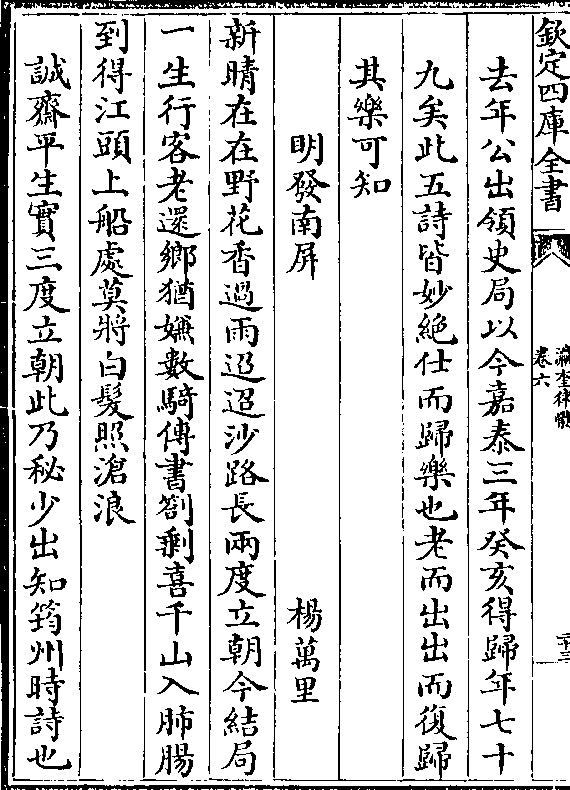 欽定四庫全書
瀛奎律髓
卷六
二十三
去年公出領史局以今嘉泰三年癸亥得歸年七十
九矣此五詩皆妙絶仕而歸樂也老而出出而復歸
其樂可知
明發南屏　楊萬里
新晴在在野花香過雨迢迢沙路長兩度立朝今結局
一生行客老還鄉猶嫌數騎傳書劄剰喜千山入肺腸
到得江頭上船處莫將白髮照滄浪
誠齋平生實三度立朝此乃秘少出知筠州時詩也